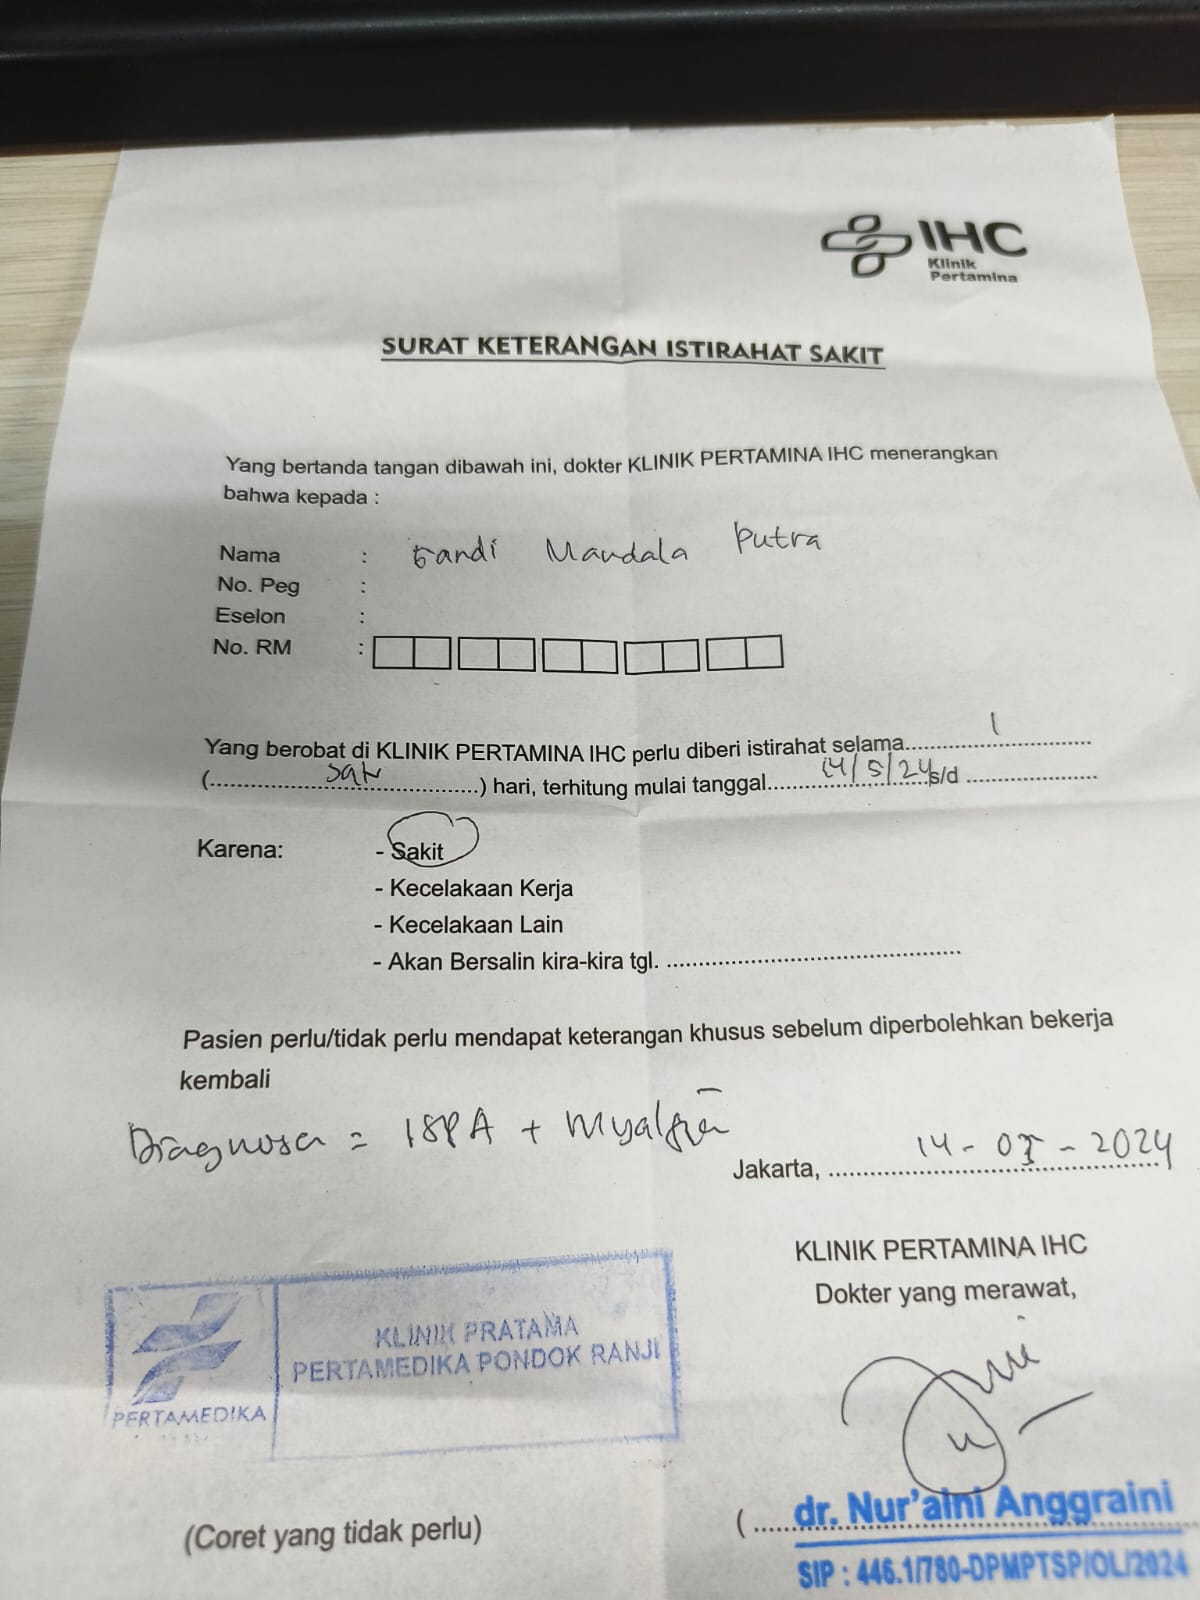 IHC
Klinik
Pertamina
SURAT KETERANGAN ISTIRAHAT SAKIT
Yang bertanda tangan dibawah ini, dokter KLINIK PERTAMINA IHC menerangkan
bahwa kepada :
Nama : Fandi Mandala Putra
No. Peg :
Eselon :
No. RM :
Yang berobat di KLINIK PERTAMINA IHC perlu diberi istirahat selama.......1.......
(.......satu.......) hari, terhitung mulai tanggal.......14/5/24 s/d .......
Karena: - Sakit
- Kecelakaan Kerja
- Kecelakaan Lain
- Akan Bersalin kira-kira tgl. .......
Pasien perlu/tidak perlu mendapat keterangan khusus sebelum diperbolehkan bekerja
kembali
Diagnosa = ISPA + Myalgia
Jakarta, 14-05-2024
KLINIK PERTAMINA IHC
Dokter yang merawat,
KLINIK PRATAMA
PERTAMEDIKA PONDOK RANJI
PERTAMEDIKA
(Coret yang tidak perlu)
(....... dr. Nur'aini Anggraini
SIP : 446.1/780-DPMPTSP/OL/2024